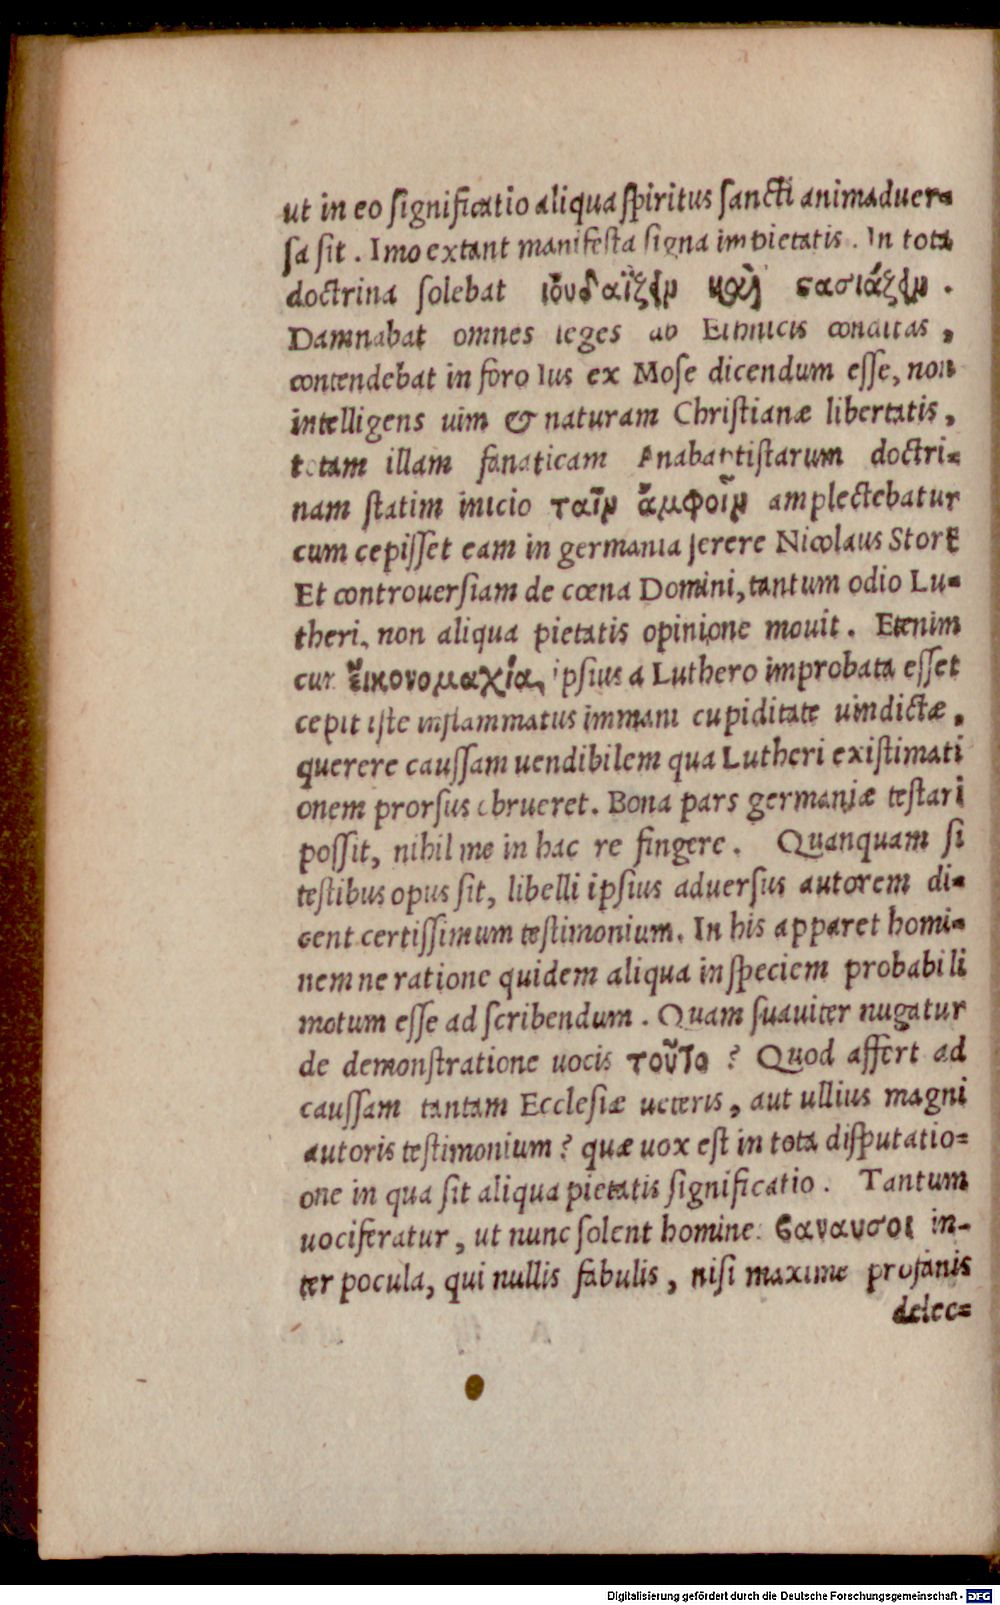 ut in eo significatio aliqua spiritus sancti animaduer=
sa sit. Imo extant manifesta signa impietatis. In tota
doctrina solebat ἰουδαΐζειν καὶ στασιάζειν.
Damnabat omnes leges ab Ethnicis conditas,
contendebat in foro Ius ex Mose dicendum esse, non
intelligens uim & naturam Christianæ libertatis,
totam illam fanaticam Anabaptistarum doctri=
nam statim inicio ταῖν ἀμφοῖν amplectebatur
cum cepisset eam in germania serere Nicolaus Stork
Et controuersiam de cœna Domini, tantum odio Lu=
theri, non aliqua pietatis opinione mouit. Etenim
cum εἰκονομαχία ipsius a Luthero improbata esset
cepit iste inflammatus immani cupiditate uindictæ,
querere caussam uendibilem qua Lutheri existimati
onem prorsus obrueret. Bona pars germaniæ testari
possit, nihil me in hac re fingere. Quanquam si
testibus opus sit, libelli ipsius aduersus autorem di=
cent certissimum testimonium. In his apparet homi=
nem ne ratione quidem aliqua in speciem probabili
motum esse ad scribendum. Quam suauiter nugatur
de demonstratione uocis τοῦτο? Quod affert ad
caussam tantam Ecclesiæ ueteris, aut ullius magni
autoris testimonium? quæ uox est in tota disputatio=
one in qua sit aliqua pietatis significatio. Tantum
uociferatur, ut nunc solent homines βαναυσοι in=
ter pocula, qui nullis fabulis, nisi maxime profanis
delec=
Digitalisierung gefördert durch die Deutsche Forschungsgemeinschaft - DFG